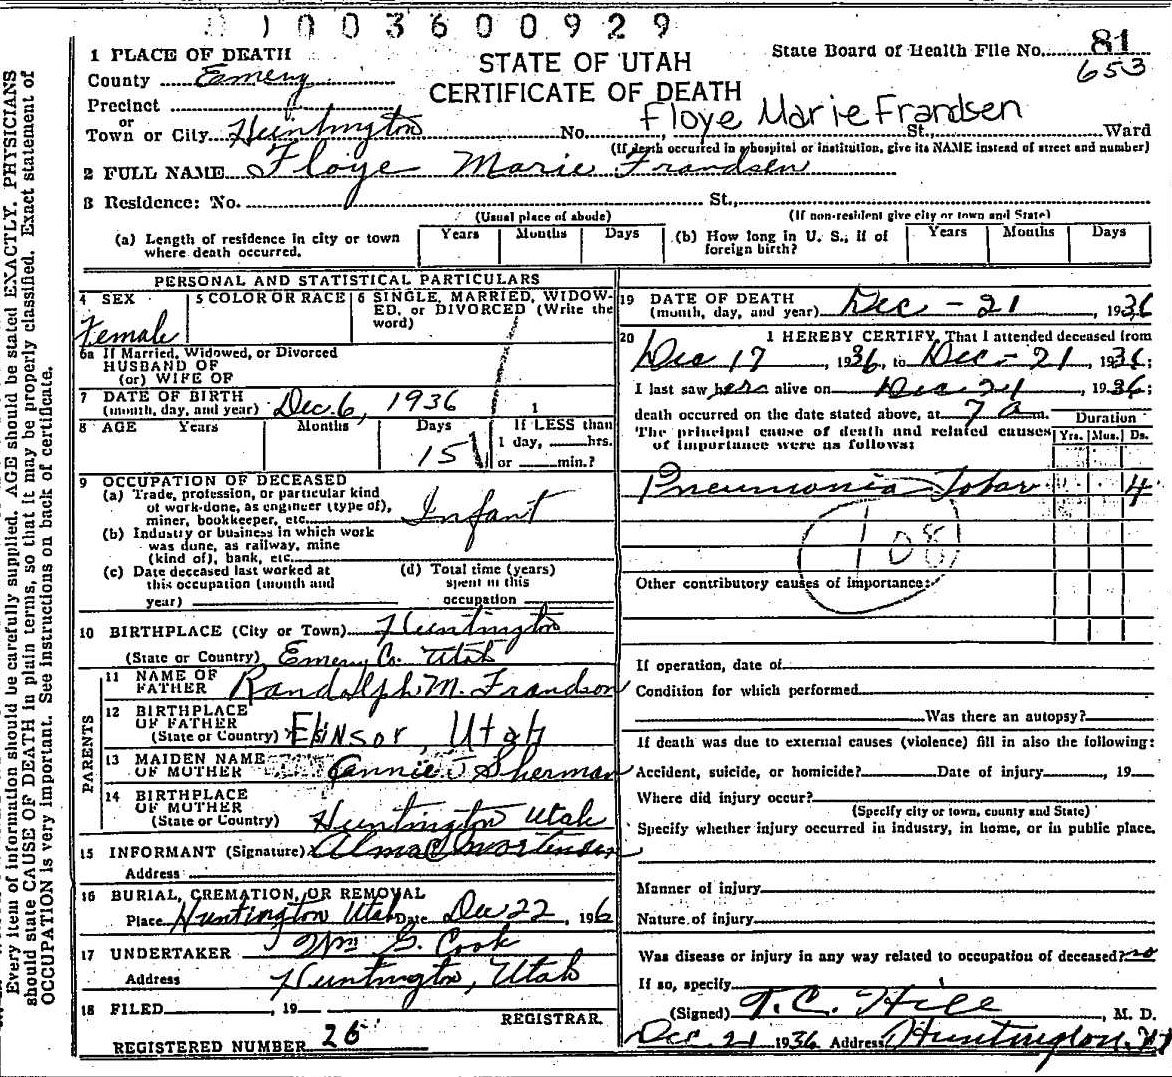 1003600929
1 PLACE OF DEATH
STATE OF UTAH
CERTIFICATE OF DEATH
State Board of Health File No. 81
653
County Emery
Precinct
or
Town or City Huntington No. Floye Marie Frandsen St., Ward
(If death occurred in a hospital or institution, give its NAME instead of street and number)
2 FULL NAME Floye Marie Frandsen
3 Residence: No. St.,
(Usual place of abode) (If non-resident give city or town and State)
(a) Length of residence in city or town where death occurred. Years Months Days (b) How long in U. S., if of foreign birth? Years Months Days
PERSONAL AND STATISTICAL PARTICULARS
4 SEX Female
5 COLOR OR RACE
6 SINGLE, MARRIED, WIDOW-
ED, or DIVORCED (Write the
word)
6a If Married, Widowed, or Divorced
HUSBAND OF
(or) WIFE OF
7 DATE OF BIRTH
(month, day, and year) Dec. 6, 1936
8 AGE Years Months Days If LESS than
15 1 day, hrs.
or min.?
9 OCCUPATION OF DECEASED
(a) Trade, profession, or particular kind
of work done, as engineer (type of),
miner, bookkeeper, etc. Infant
(b) Industry or business in which work
was done, as railway, mine
(kind of), bank, etc.
(c) Date deceased last worked at
this occupation (month and
year)
(d) Total time (years)
spent in this
occupation
10 BIRTHPLACE (City or Town) Huntington
(State or Country) Emery Co. Utah
PARENTS
11 NAME OF
FATHER Randolph M. Frandson
12 BIRTHPLACE
OF FATHER
(State or Country) Elinsor, Utah
13 MAIDEN NAME
OF MOTHER Annie J Sherman
14 BIRTHPLACE
OF MOTHER
(State or Country) Huntington Utah
15 INFORMANT (Signature) Alma C Mortensen
Address
16 BURIAL, CREMATION, OR REMOVAL
Place Huntington Utah Date Dec 22, 196
17 UNDERTAKER Wm G. Cook
Address Huntington, Utah
18 FILED , 19
REGISTRAR.
REGISTERED NUMBER 26
19 DATE OF DEATH
(month, day, and year) Dec - 21, 1936
20 I HEREBY CERTIFY, That I attended deceased from
Dec 17, 1936, to Dec - 21, 1936;
I last saw her alive on Dec - 21, 1936;
death occurred on the date stated above, at 7 a m.
The principal cause of death and related causes
of importance were as follows:
Duration
Yrs. Mos. Ds.
Pneumonia Lobar 4
108
Other contributory causes of importance:
If operation, date of
Condition for which performed
Was there an autopsy?
If death was due to external causes (violence) fill in also the following:
Accident, suicide, or homicide? Date of injury , 19
Where did injury occur?
(Specify city or town, county and State)
Specify whether injury occurred in industry, in home, or in public place.
Manner of injury
Nature of injury
Was disease or injury in any way related to occupation of deceased? no
If so, specify
(Signed) T. C. Hill, M. D.
Dec. 21 1936 Address Huntington, Ut
Every item of information should be carefully supplied. AGE should be stated EXACTLY. PHYSICIANS
should state CAUSE OF DEATH in plain terms, so that it may be properly classified. Exact statement of
OCCUPATION is very important. See instructions on back of certificate.